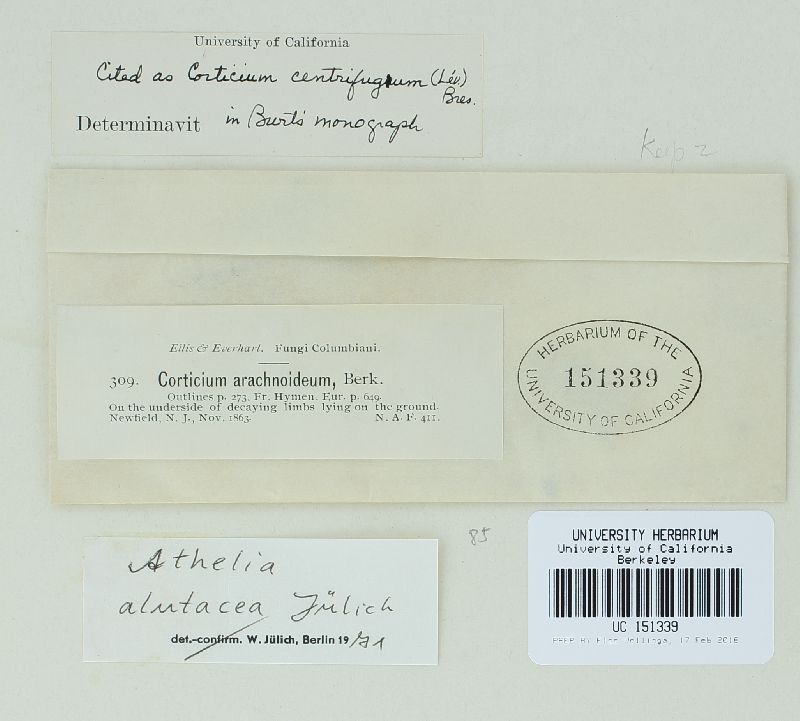 University of California
Cited as Corticium centrifugum (Lév.)
Bres.
Determinavit in Burt's monograph
Keep 2
Ellis & Everhart. Fungi Columbiani.
309. Corticium arachnoideum, Berk.
Outlines p. 273, Fr. Hymen. Eur. p. 649.
On the underside of decaying limbs lying on the ground.
Newfield, N. J., Nov. 1863. N. A. F. 411.
HERBARIUM OF THE
151339
UNIVERSITY OF CALIFORNIA
85
Athelia
alutacea Jülich
det.-confirm. W. Jülich, Berlin 19/71
UNIVERSITY HERBARIUM
University of California
Berkeley
UC 151339
17 Feb 2016